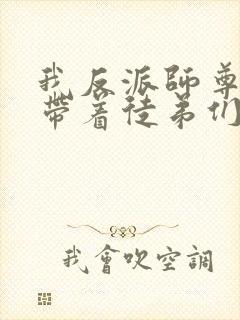 我反派師尊
帶着徒弟们
我會吹空調